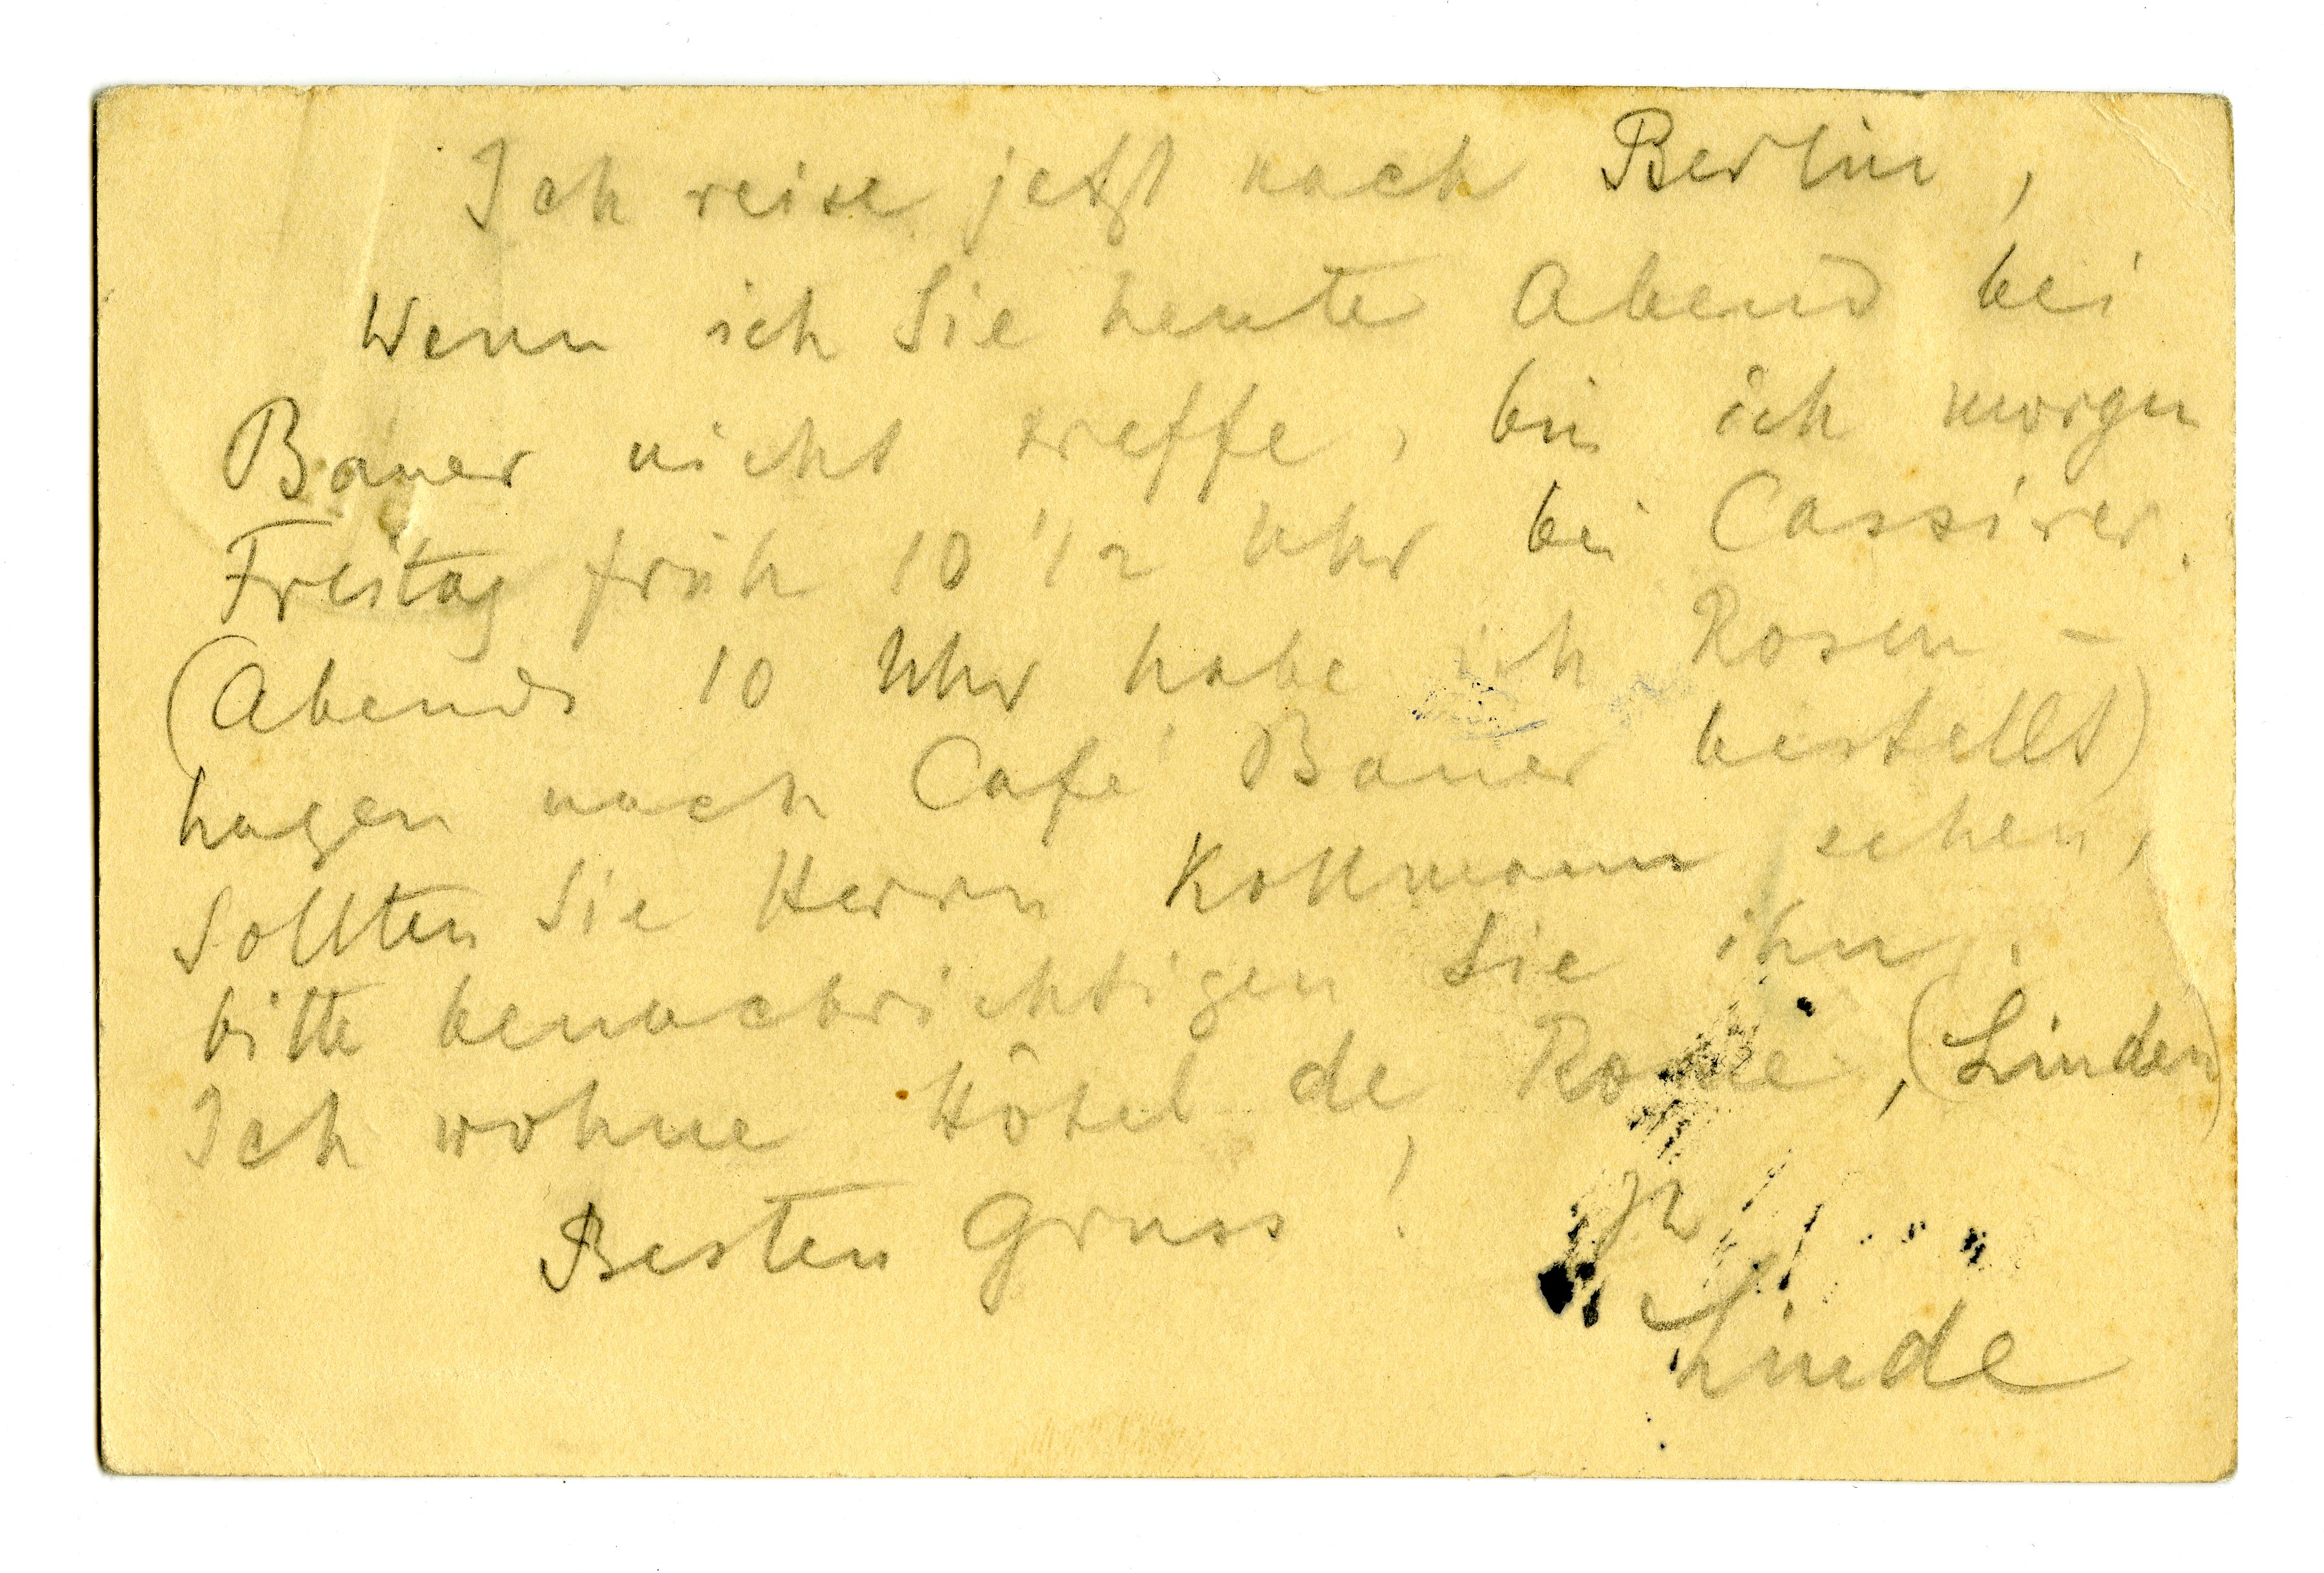 Ich reise jetzt nach Berlin,
Wenn ich Sie heute Abend bei
Bauer nicht treffe, bin ich morgen
Freitag früh 10 1/2 Uhr bei Cassirer.
(Abends 10 Uhr habe ich Rosen-
hagen nach Café Bauer bestellt)
Sollten Sie Herrn Kollmann sehen,
bitte benachrichtigen Sie ihn.
Ich wohne Hôtel de Rome, (Linden)
Besten Gruss! Ihr
Linde